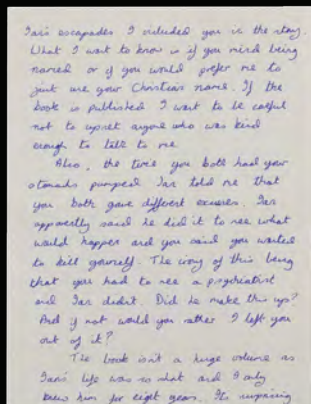 Ians escapades I included you in the story.
What I want to know is if you mind being
named or if you would prefer me to
just use your Christian name. If the
book is published I want to be careful
not to upset anyone who was kind
enough to talk to me
Also, the time you both had your
stomachs pumped Ian told me that
you both gave different excuses. Ian
apparently said he did it to see what
would happen and you said you wanted
to kill yourself. The irony of this being
that you had to see a psychiatrist
and Ian didnt. Did he make this up?
And if not would you rather I left you
out of it?
The book isn't a huge volume as
Ians' life was so short and I only
knew him for eight years. Its surprising